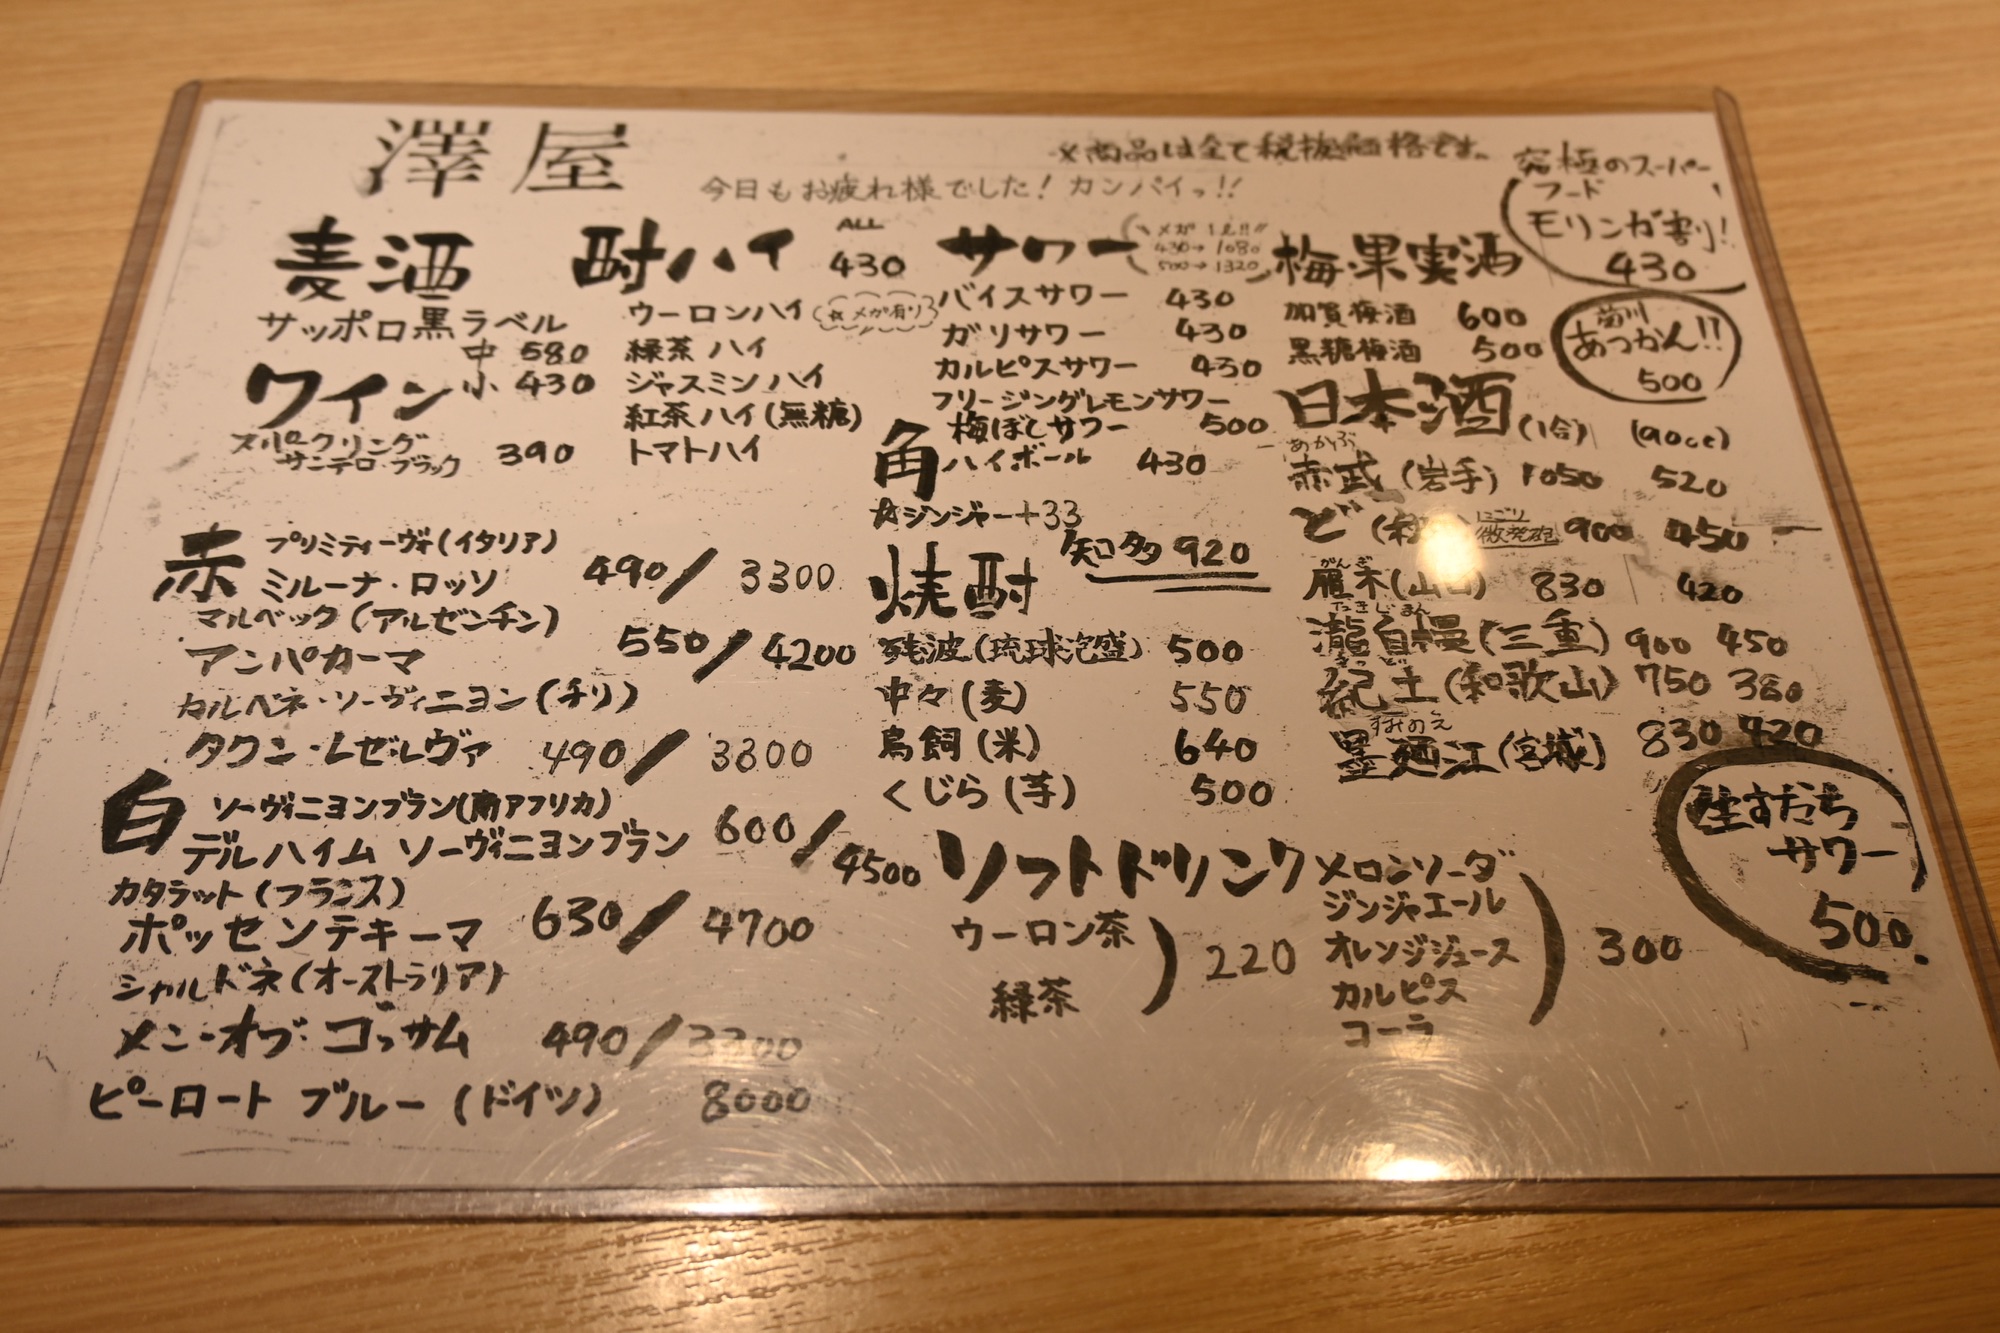 澤屋
※商品は全て税抜価格です。
今日もお疲れ様でした！カンパイっ!!
麦酒
サッポロ黒ラベル
中 580
小 430
ワイン
スパークリング
サンテロ・ブラック 390
赤
プリミティーヴォ(イタリア)
ミルーナ・ロッソ 490/3300
マルベック(アルゼンチン)
アンパカーマ 550/4200
カルベネ・ソーヴィニヨン(チリ)
タクン・レゼルヴァ 490/3300
白
ソーヴィニヨンブラン(南アフリカ)
デルハイム ソーヴィニヨンブラン 600/4500
カタラット(フランス)
ポッセンテキーマ 630/4700
シャルドネ(オーストラリア)
メン・オブ・ゴッサム 490/3300
ピーロート ブルー(ドイツ) 8000
酎ハイ ALL 430
ウーロンハイ
☆メガ有り
緑茶ハイ
ジャスミンハイ
紅茶ハイ(無糖)
トマトハイ
サワー
メガ 1ℓ!!
430→1080
500→1320
バイスサワー 430
ガリサワー 430
カルピスサワー 430
フリージングレモンサワー
梅ぼしサワー 500
角ハイボール 430
☆ジンジャー+33
知多 920
焼酎
残波(琉球泡盛) 500
中々(麦) 550
鳥飼(米) 640
くじら(芋) 500
ソフトドリンク
ウーロン茶
緑茶
220
メロンソーダ
ジンジャエール
オレンジジュース
カルピス
コーラ
300
梅・果実酒
加賀梅酒 600
黒糖梅酒 500
日本酒 (1合) (90cc)
あかぶ
赤武(岩手) 1050 520
ど にごり 微発砲 900 450
がんぎ
雁木(山口) 830 420
たきじまん
瀧自慢(三重) 900 450
きっど
紀土(和歌山) 750 380
すみのえ
墨廼江(宮城) 830 420
究極のスーパー
フード
モリンガ割り!
430
菊川
あつかん!!
500
生すだち
サワー
500